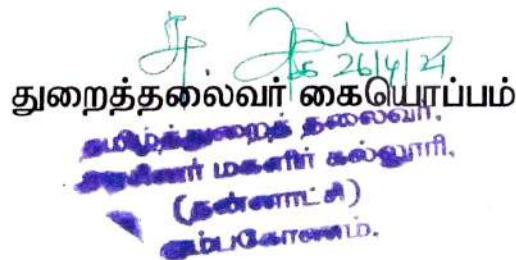 26/4/21
துறைத்தலைவர் கையொப்பம்
தமிழ்த்துறைத் தலைவர்,
மகளிர் கல்லூரி,
(தன்னாட்சி)
கும்பகோணம்.